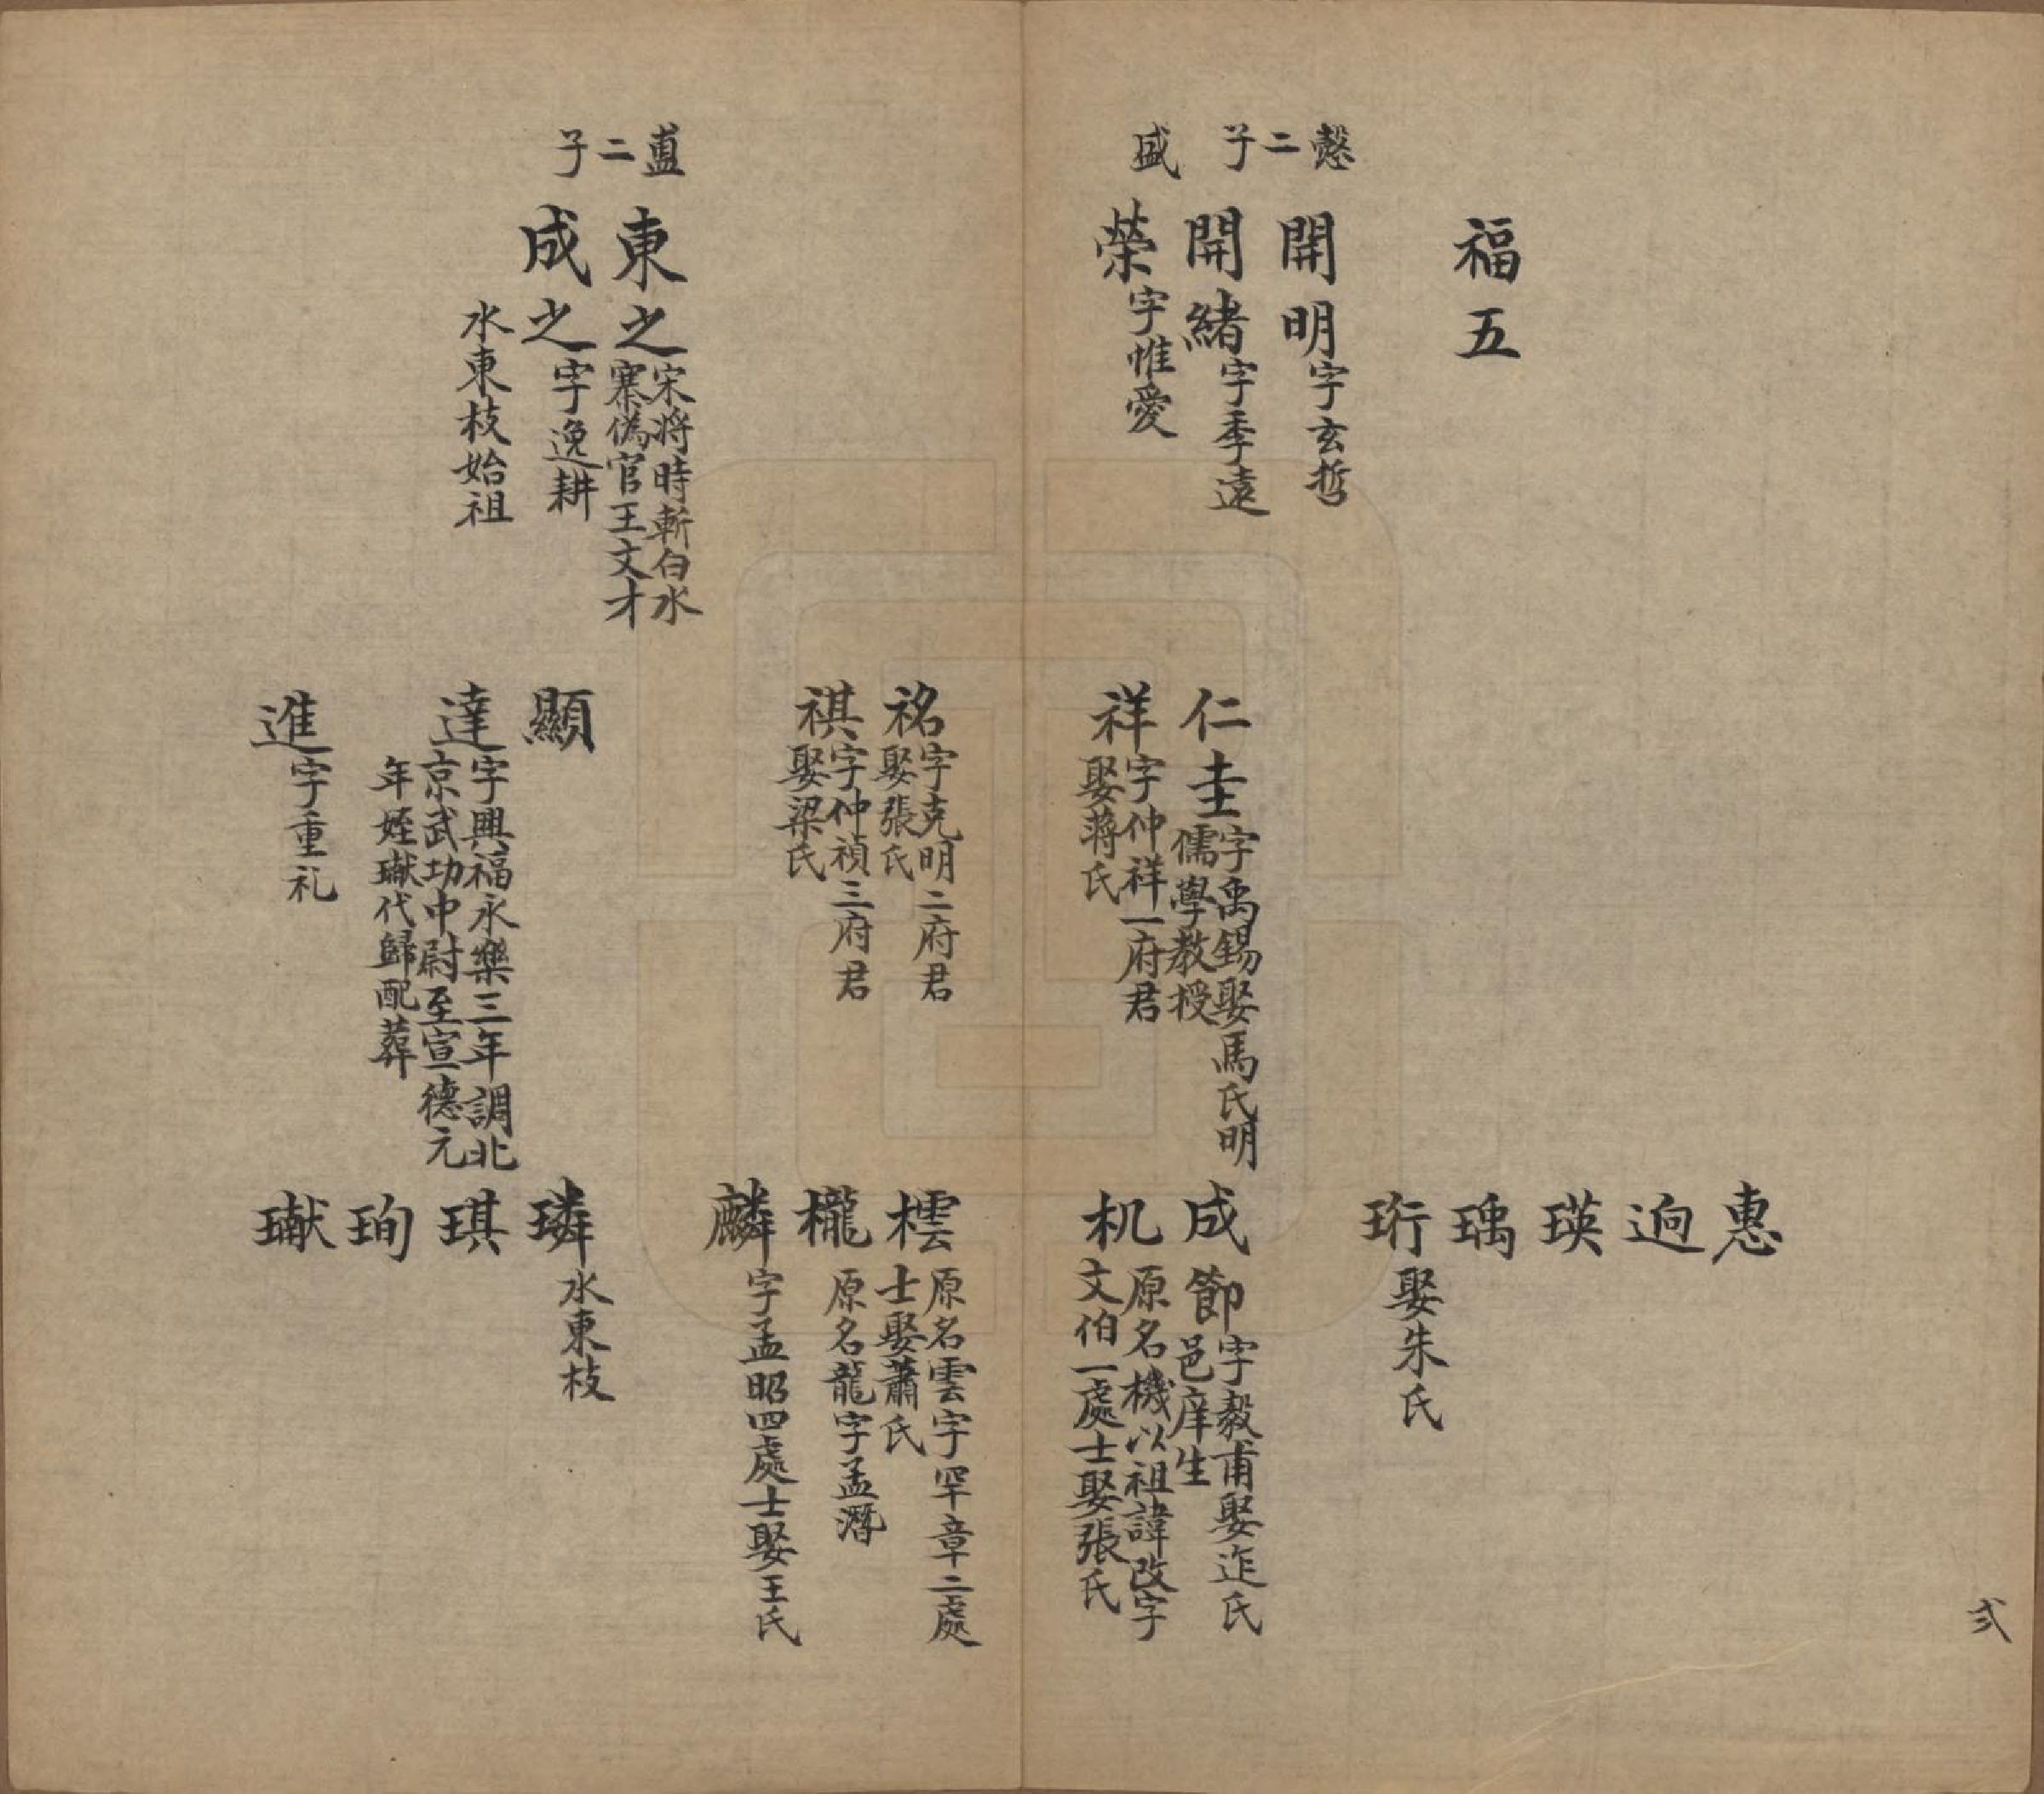 弍
福五
慤二子
開明字玄哲
開緒字季遠
盛
榮字惟愛
矗二子
東之宋將時斬白水
寨偽官王文才
成之字逸耕
水東枝始祖
仁圭字禹錫娶馬氏明
儒學教授
祥字仲祥一府君
娶蔣氏
祐字克明二府君
娶張氏
祺字仲禎三府君
娶梁氏
顯
達字興福永樂三年調北
京武功中尉至宣德元
年姪瓛代歸配葬
進字重礼
惠
逈
瑛
瑀
珩娶朱氏
成節字毅甫娶迮氏
邑庠生
机原名機以祖諱改字
文伯一處士娶張氏
橒原名雲字罕章二處
士娶蕭氏
櫳原名龍字孟潛
麟字孟昭四處士娶王氏
璘水東枝
琪
珣
瓛